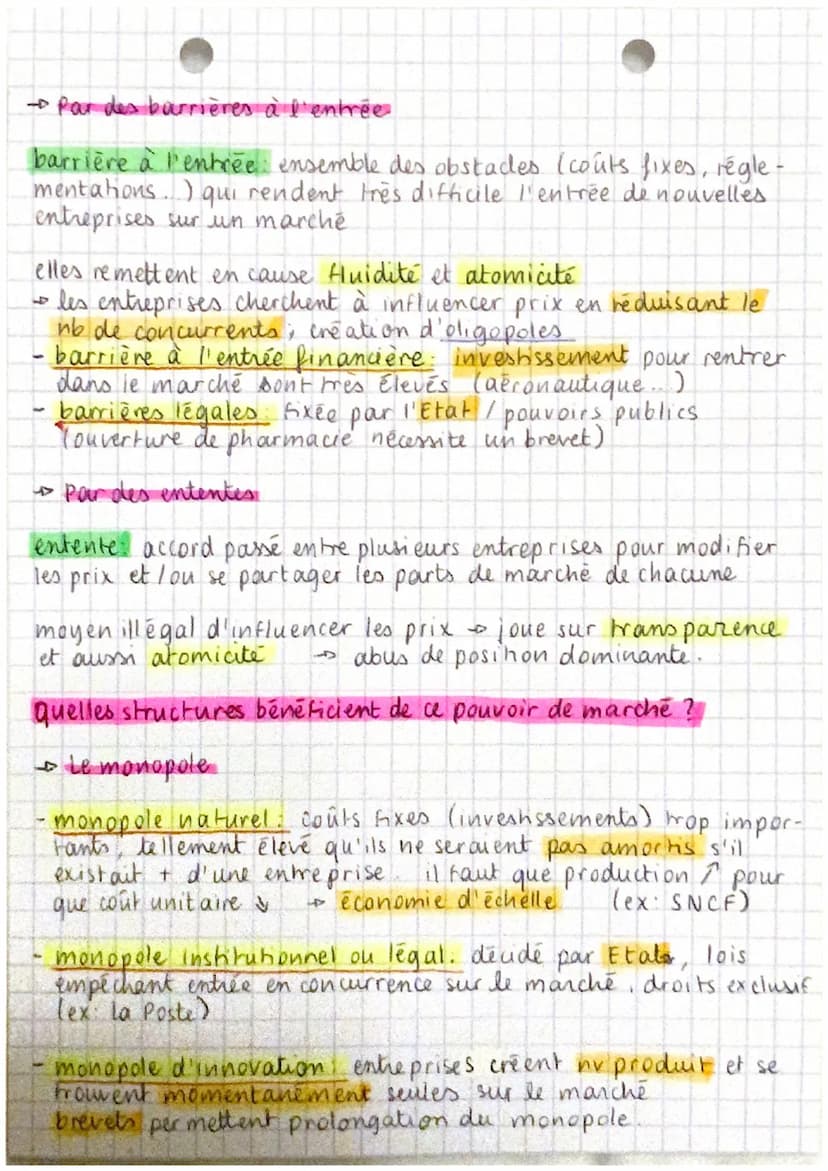 → Par des barrières à l'entrée
barrière à l'entrée: ensemble des obstacles (coûts fixes, régle-
mentations...) qui rendent très difficile l'entrée de nouvelles
entreprises sur un marché
elles remettent en cause fluidité et atomicité
→ les entreprises cherchent à influencer prix en réduisant le
nb de concurrents; création d'oligopoles
- barrière à l'entrée financière: investissement pour rentrer
dans le marché sont très élevés (aéronautique...)
- barrières légales: fixée par l'Etat / pouvoirs publics
(ouverture de pharmacie nécessite un brevet)
→ Par des ententes
entente: accord passé entre plusieurs entreprises pour modifier
les prix et/ou se partager les parts de marché de chacune
moyen illégal d'influencer les prix → joue sur transparence
et aussi atomicité → abus de position dominante.
quelles structures bénéficient de ce pouvoir de marché ?
→ Le monopole
- monopole naturel: coûts fixes (investissements) trop impor-
tants, tellement élevé qu'ils ne seraient pas amortis s'il
existait + d'une entreprise. il faut que production ↗ pour
que coût unitaire ↓ → économie d'échelle (ex: SNCF)
- monopole institutionnel ou légal: décidé par Etat, lois
empêchant entrée en concurrence sur le marché, droits exclusif
(ex: la Poste)
- monopole d'innovation: entreprises créent nv produit et se
trouvent momentanément seules sur le marché
brevets permettent prolongation du monopole.